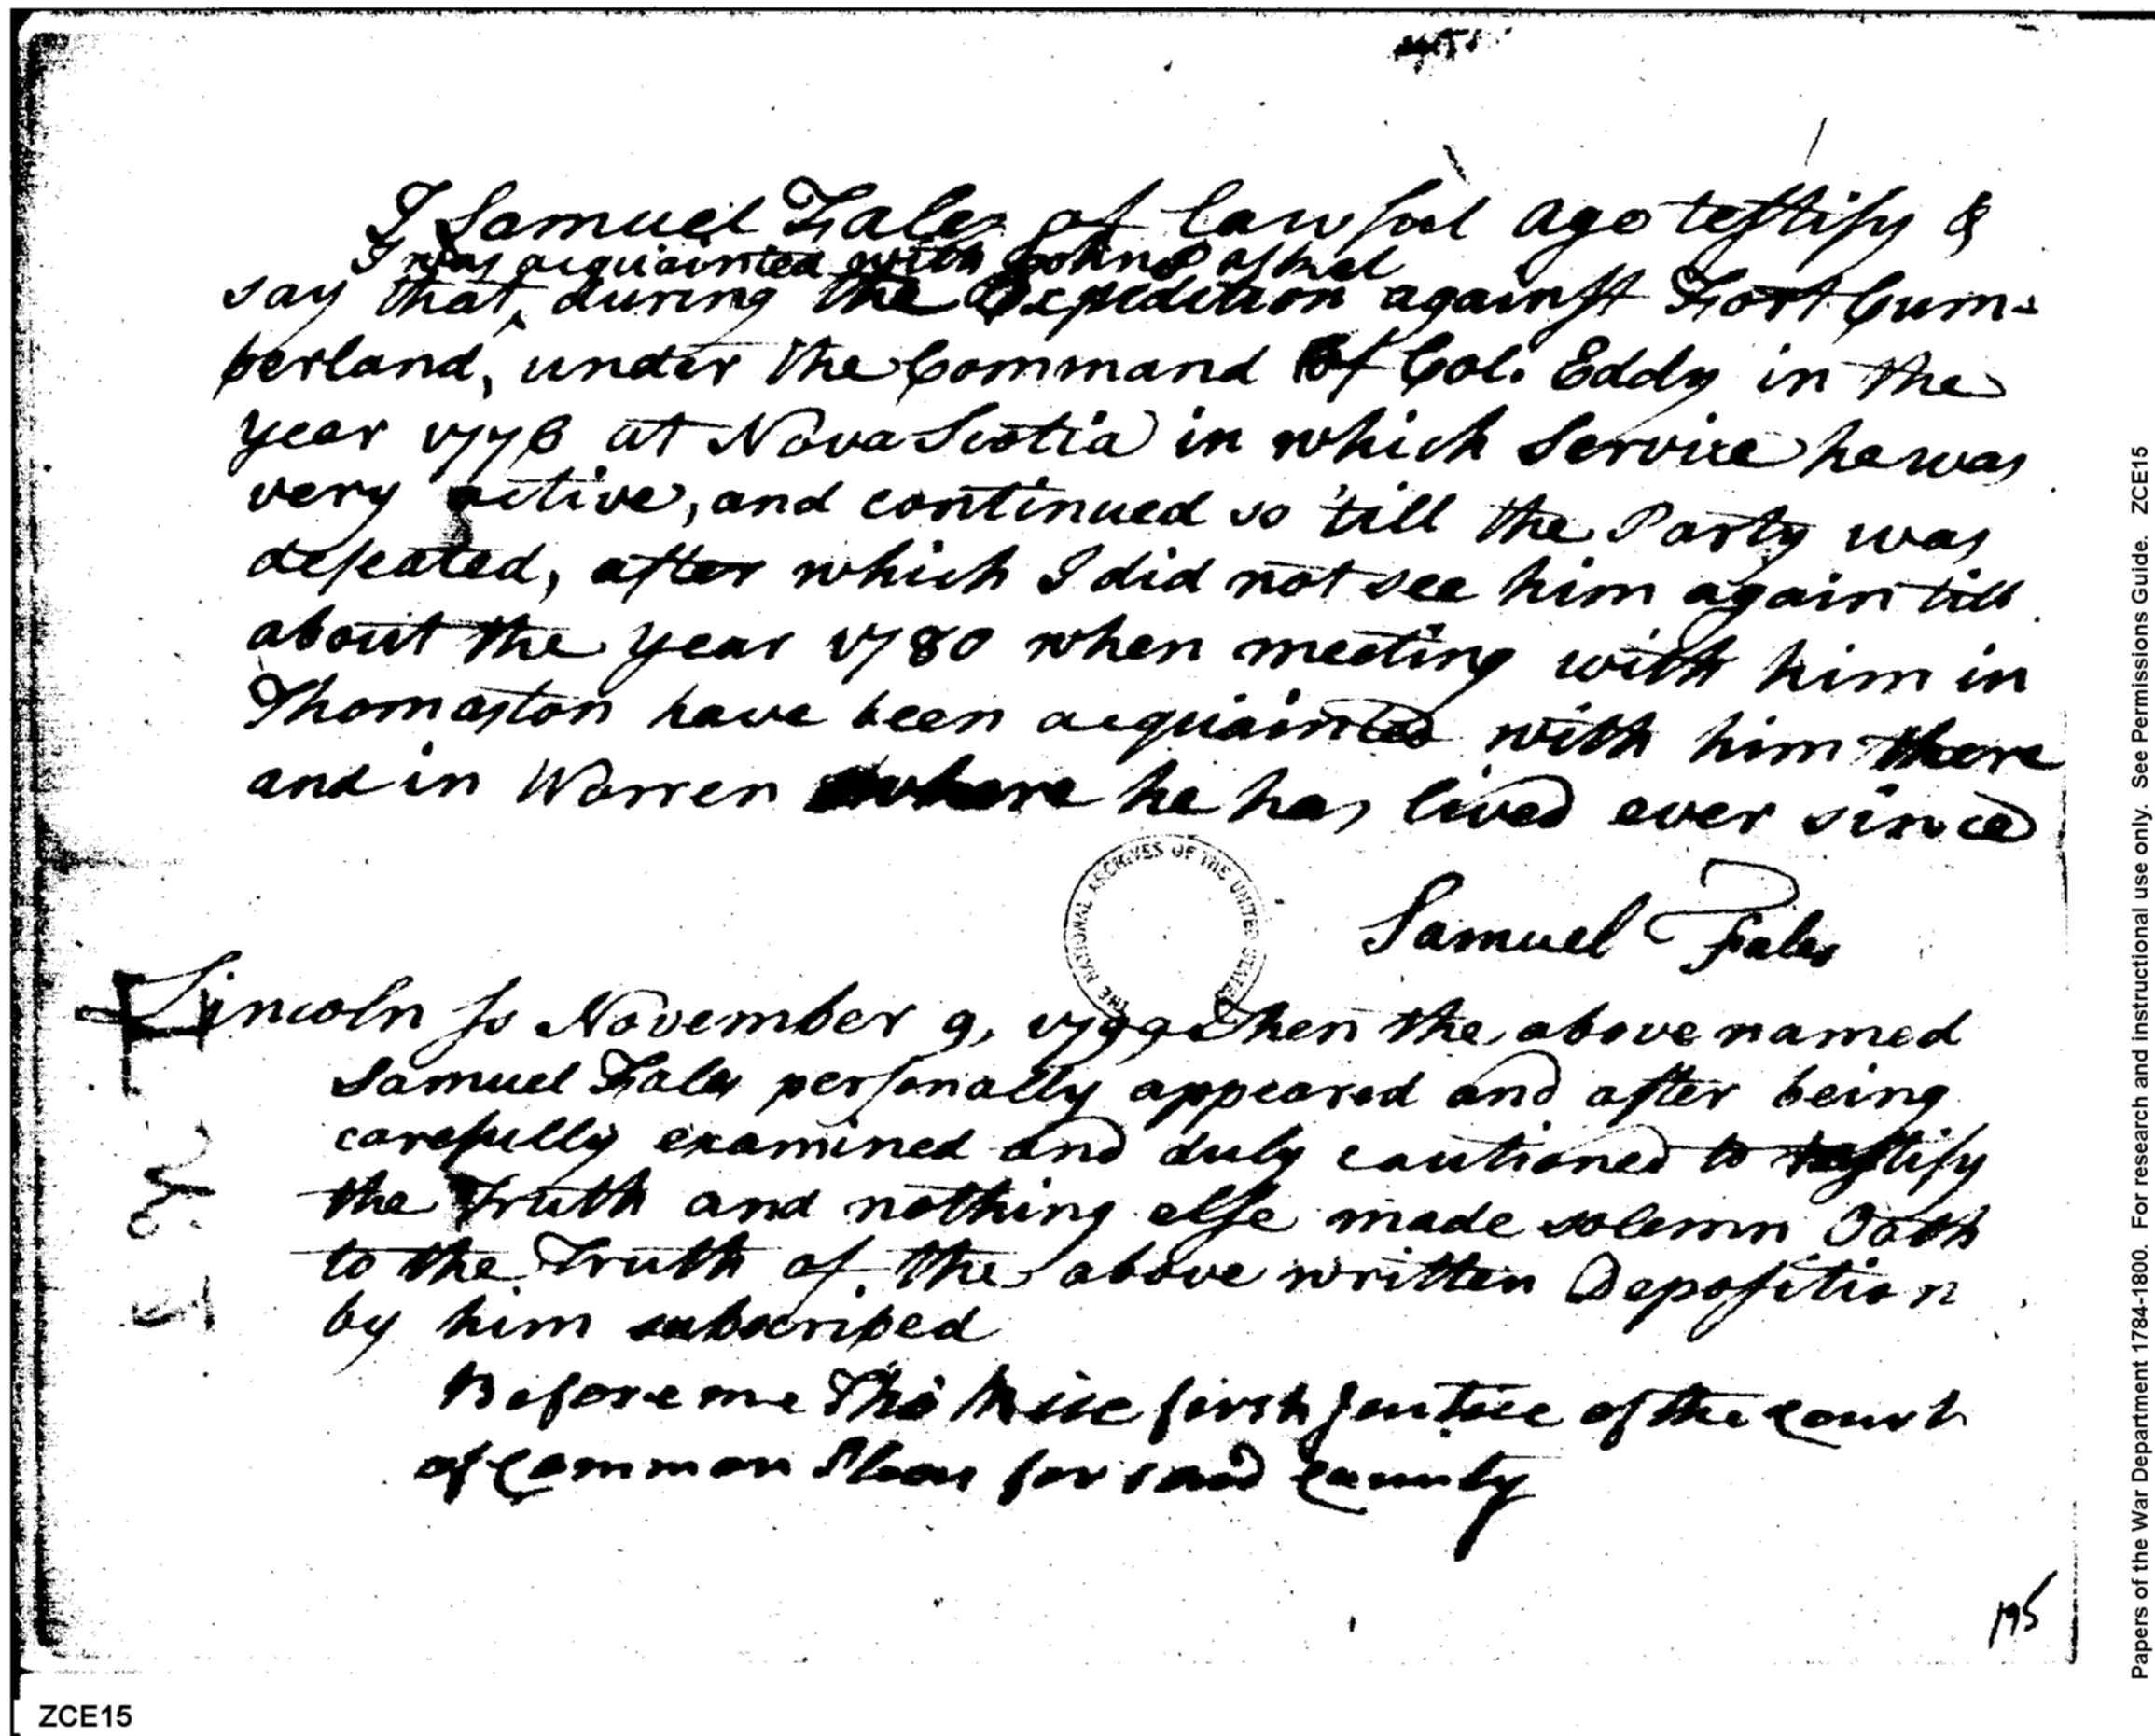 I Samuel Fales of lawful age testify &
I was acquainted with John Paskel
say that, during the Expedition against Fort Cum=
berland, under the Command of Col. Eddy in the
year 1776 at Nova Scotia in which Service he was
very active, and continued so 'till the Party was
defeated, after which I did not see him again till
about the year 1780 when meeting with him in
Thomaston have been acquainted with him there
and in Warren where he has lived ever since
THE NATIONAL ARCHIVES OF THE UNITED STATES
Samuel Fales
Lincoln ss November 9, 1799 then the above named
Samuel Fales personally appeared and after being
carefully examined and duly cautioned to testify
the Truth and nothing else made solemn Oath
to the Truth of the above written Deposition
by him subscribed
Before me Tho Rice first Justice of the Court
of Common Pleas for said County
195
ZCE15
Papers of the War Department 1784-1800. For research and instructional use only. See Permissions Guide. ZCE15